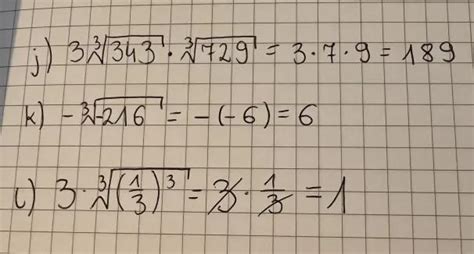 j) 3∛343 · ∛729 = 3 · 7 · 9 = 189
k) -∛-216 = -(-6) = 6
l) 3 · ∛(1/3)³ = 3 · 1/3 = 1